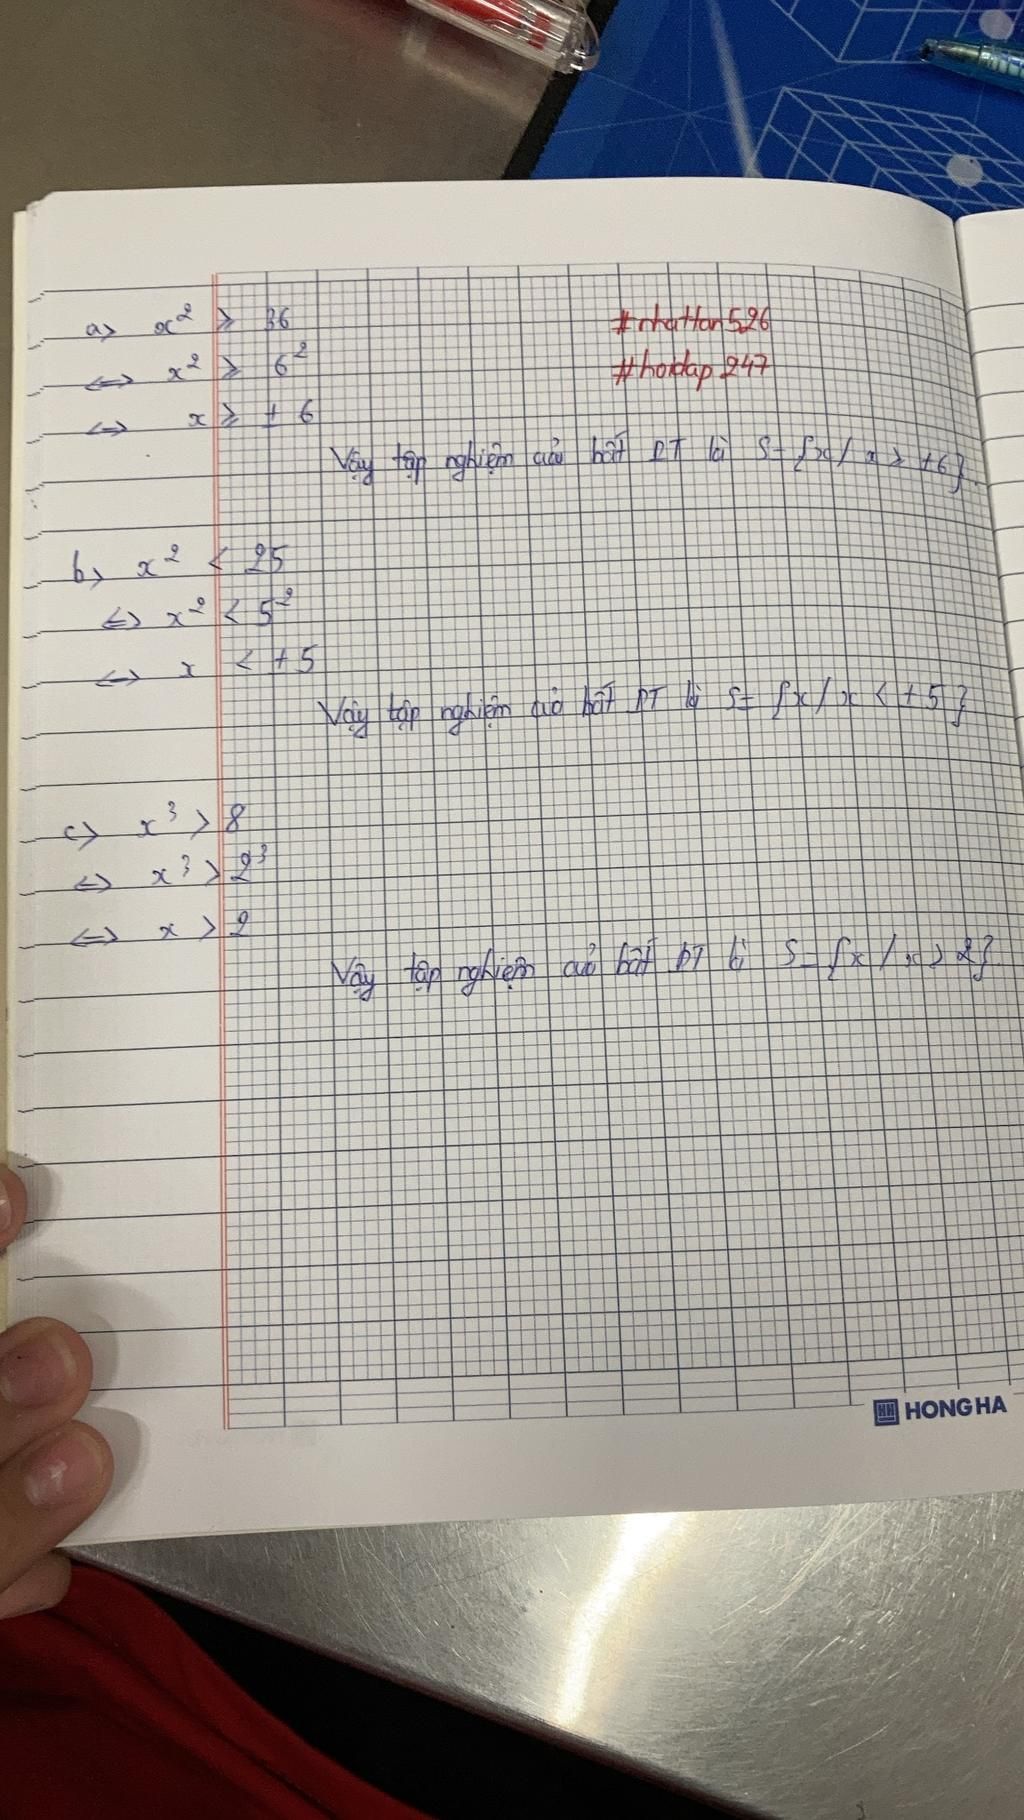 a) x² ≥ 36
#nhattan526
⇔ x² ≥ 6²
#hoidap247
⇔ x ≥ ± 6
Vậy tập nghiệm của bất PT là S = {x / x ≥ ±6}.
b) x² < 25
⇔ x² < 5²
⇔ x < ±5
Vậy tập nghiệm của bất PT là S = {x / x < ±5}
c) x³ > 8
⇔ x³ > 2³
⇔ x > 2
Vậy tập nghiệm của bất PT là S = {x / x > 2}.
HH HONG HA